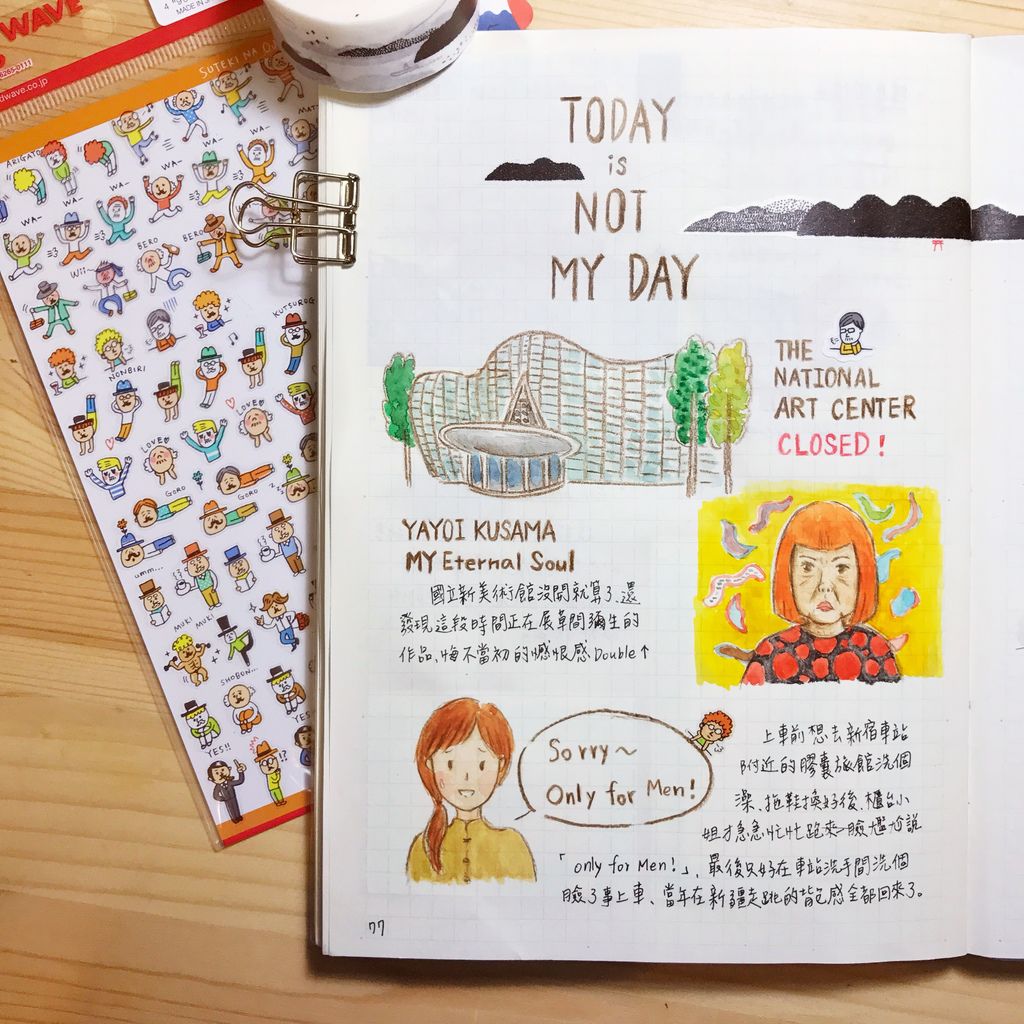 WAVE
MADE IN
dwave.co.jp
SUTEKI NA O
ARIGATO
WA-
WA-
WA-
WA-
WA-
WA-
BERO
BERO
Wii-
KUTSUROG
NONBIRI
LOVE
LOVE
GORO
GORO
umm...
MUKI
MUKI
SHOBON...
YES!!
YES!
TODAY
is
NOT
MY DAY
THE
NATIONAL
ART CENTER
CLOSED!
YAYOI KUSAMA
MY Eternal Soul
國立新美術館沒開就算了、還
發現這段時間正在展草間彌生的
作品、悔不當初的憾恨感Double↑
Sorry~
Only for Men!
上車前想去新宿車站
附近的膠囊旅館洗個
澡、拖鞋換好後、櫃台小
姐才急急忙忙跑來一臉尷尬說
「only for Men!」、最後只好在車站洗手間洗個
臉了事上車、當年在新疆走跳的背包感全都回來了。
77